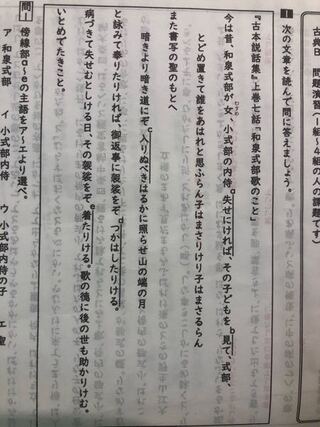 古典B 問題演習(1組〜4組の人の課題です)
1 次の文章を読んで問に答えましょう。
『古本説話集』上巻七話「和泉式部歌のこと」
今は昔、和泉式部が女、小式部の内侍a失せにければ、その子どもをb見て、式部、
とどめ置きて誰をあはれと思ふらん子はまさりけり子はまさるらん
また書写の聖のもとへ
暗きより暗き道にぞc入りぬべきはるかに照らせ山の端の月
と詠みて奉りたりければ、御返事に袈裟をぞdつかはしたりける。
病づきて失せむとしける日、その袈裟をぞe着たりける。歌の徳に後の世も助かりけむ。
いとめでたきこと。
問一
傍線部a〜eの主語をア〜エより選べ。
ア 和泉式部 イ 小式部内侍 ウ 小式部内侍の子 エ 聖